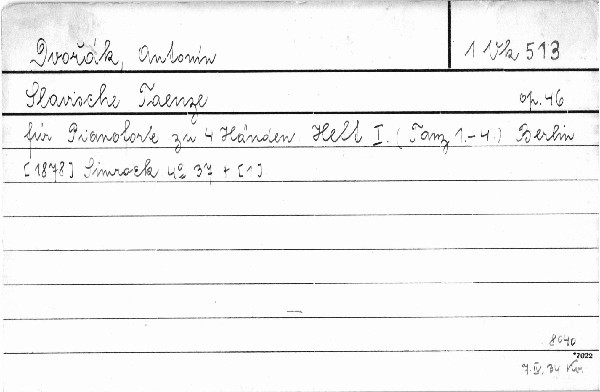 Dvořák, Antonín 1 Vk 513
Slavische Taenze op. 46
für Pianoforte zu 4 Händen. Heft I. (Tanz 1.-4.) Berlin
[1878] Simrock 4° 37 + [1]
8040
*7022
7. IV. 34